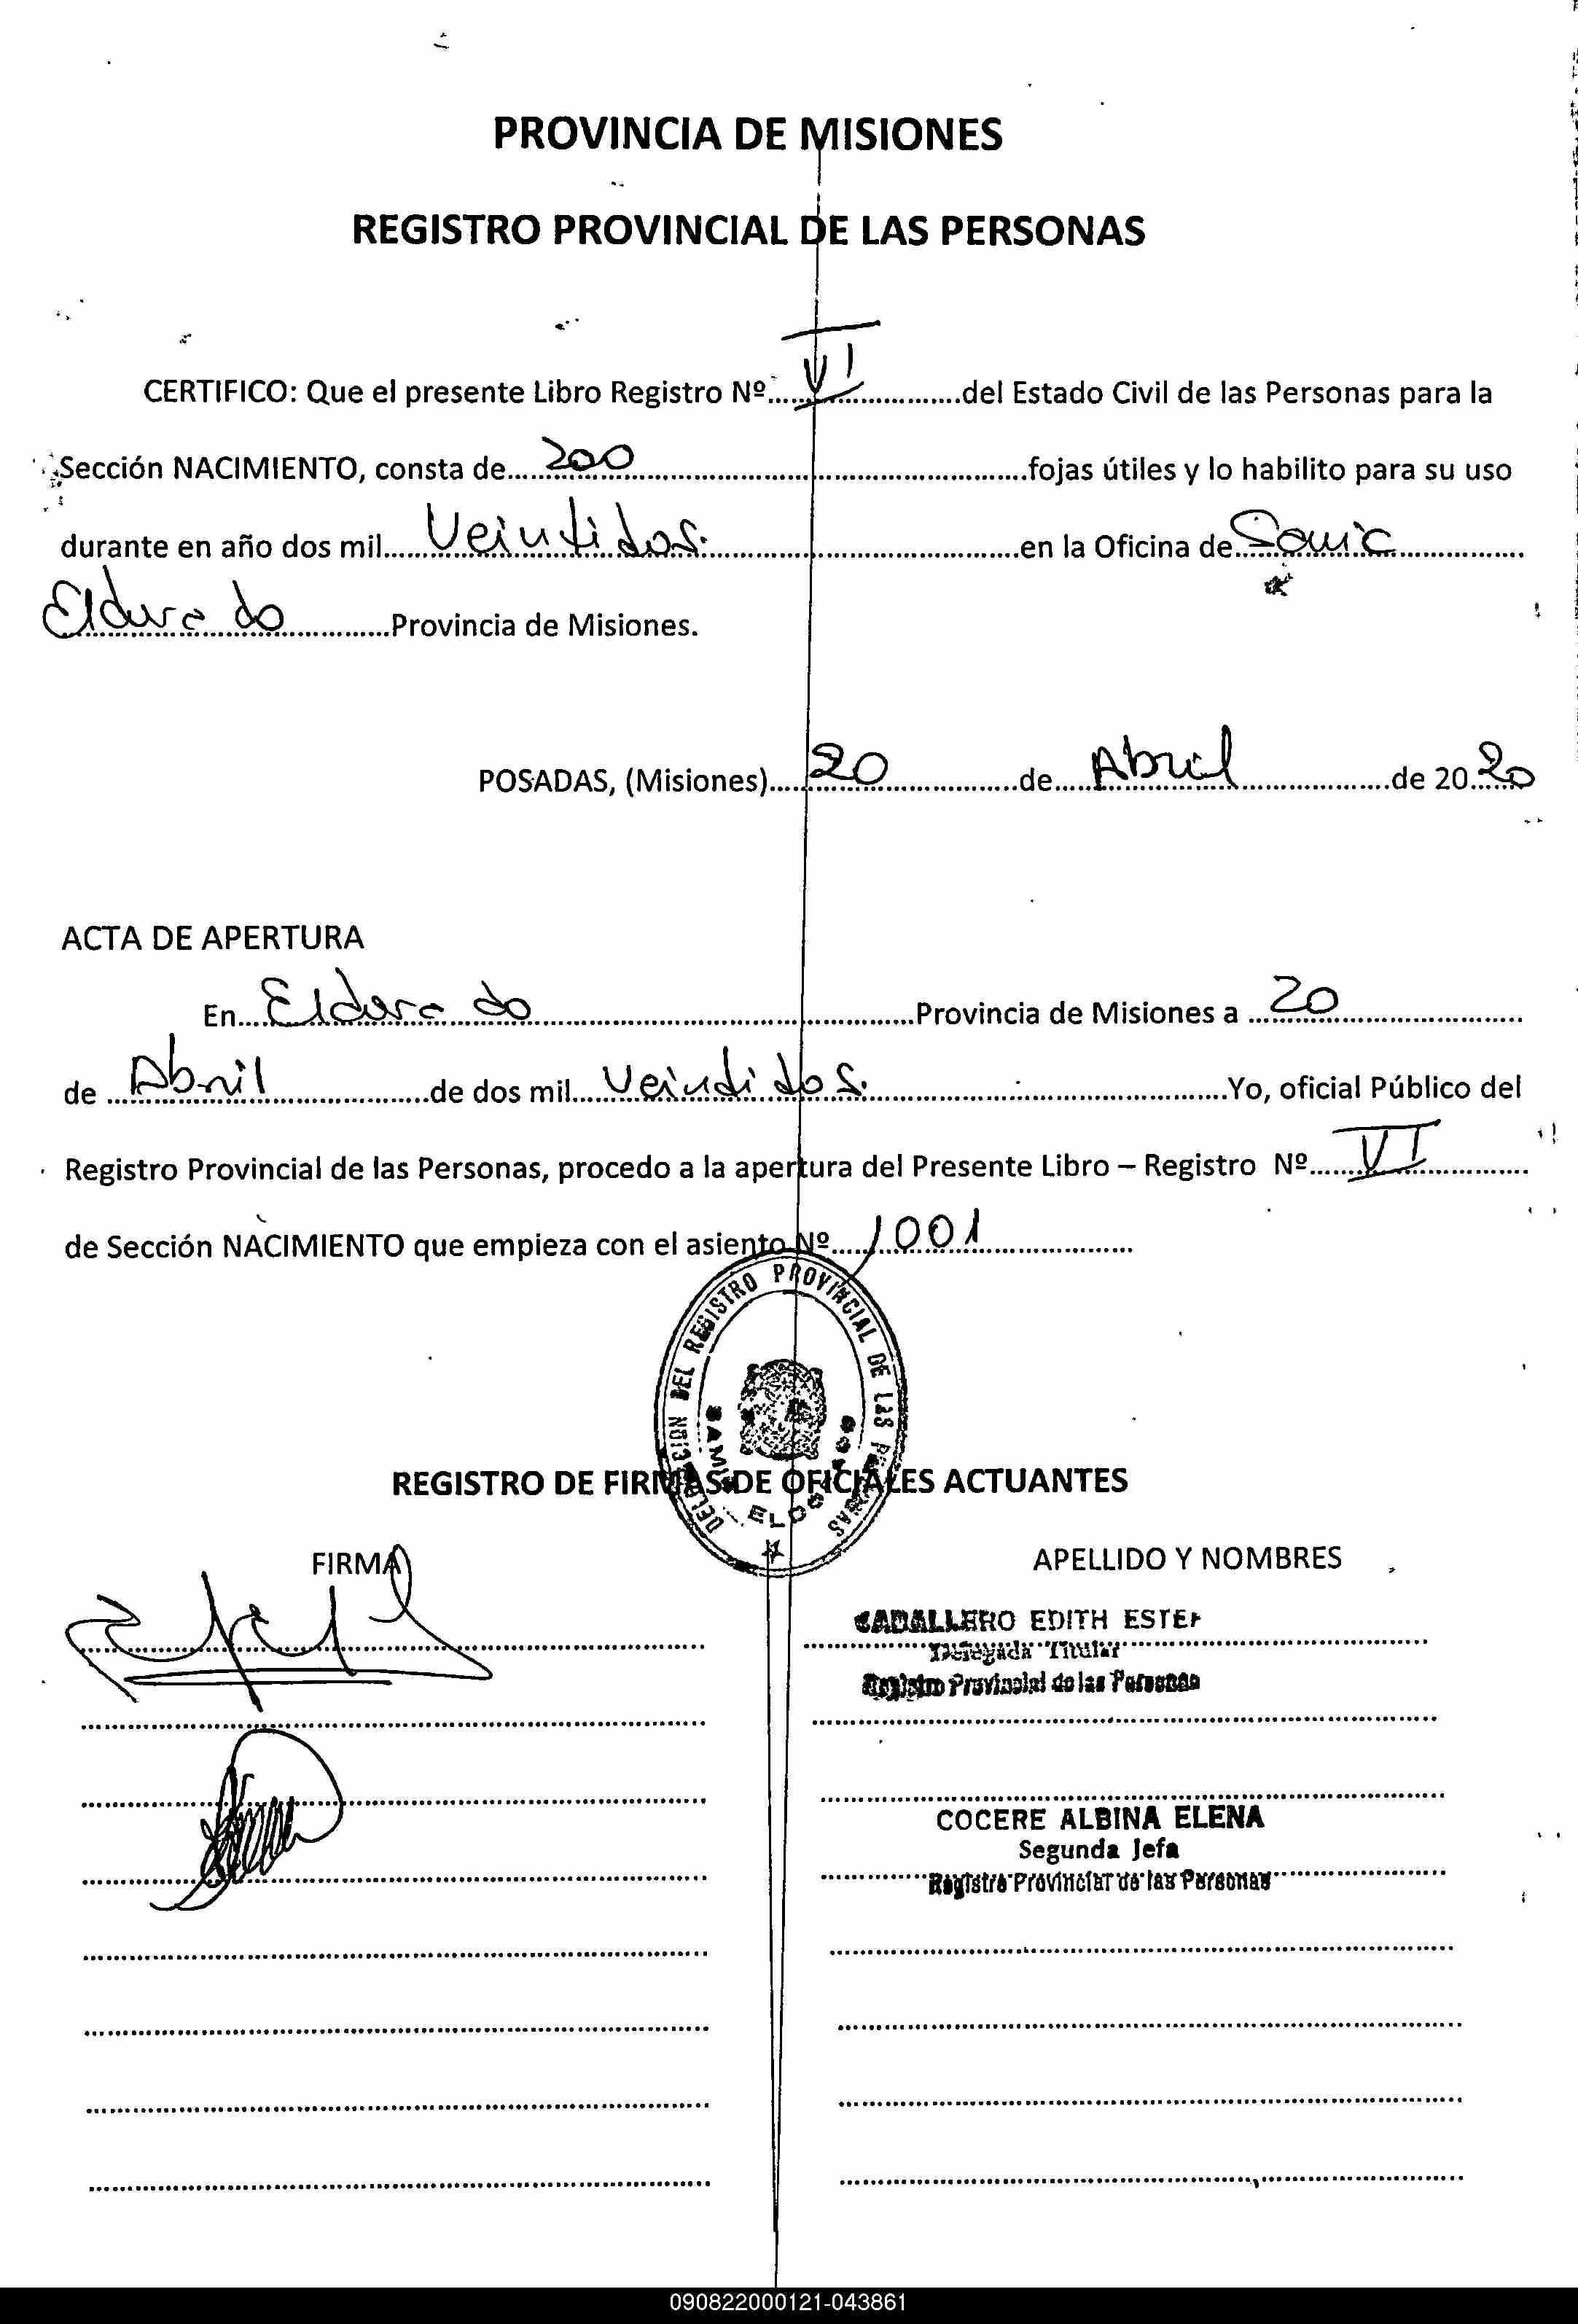 PROVINCIA DE MISIONES
REGISTRO PROVINCIAL DE LAS PERSONAS
CERTIFICO: Que el presente Libro Registro Nº VI del Estado Civil de las Personas para la
Sección NACIMIENTO, consta de 200 fojas útiles y lo habilito para su uso
durante en año dos mil Veintidos. en la Oficina de Samic
Eldorado Provincia de Misiones.
POSADAS, (Misiones) 20 de Abril de 20 20
ACTA DE APERTURA
En Eldorado Provincia de Misiones a 20
de Abril de dos mil Veintidos. Yo, oficial Público del
Registro Provincial de las Personas, procedo a la apertura del Presente Libro – Registro Nº VI
de Sección NACIMIENTO que empieza con el asiento Nº 1001
DELEGACION DEL REGISTRO PROVINCIAL DE LAS PERSONAS
SAMIC ELDORADO
REGISTRO DE FIRMAS DE OFICIALES ACTUANTES
FIRMA APELLIDO Y NOMBRES
CABALLERO EDITH ESTER
Delegada Titular
Registro Provincial de las Personas
COCERE ALBINA ELENA
Segunda Jefa
Registro Provincial de las Personas
090822000121-043861